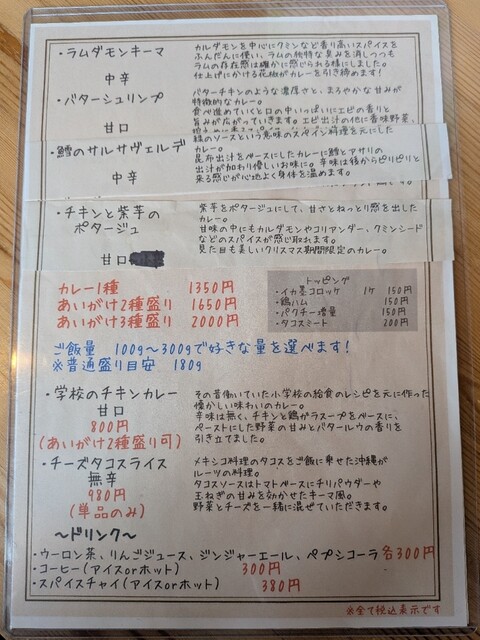 ・ラムダモンキーマ
中辛
カルダモンを中心にクミンなど香り高いスパイスを
ふんだんに使い、ラムの独特な臭みを消しつつも
ラムの存在感は確かに感じられる様にしました。
仕上げにかける花椒がカレーを引き締めます!
・バターシュリンプ
甘口
バターチキンのような濃厚さと、まろやかな甘みが
特徴的なカレー。
食べ進めていくと口の中いっぱいにエビの香りと
旨みが広がっていきます。エビ出汁の他に香味野菜、
・鱈のサルサヴェルデ
中辛
緑のソースという意味のスペイン料理を元にした
カレー。
昆布出汁をベースにしたカレーに鱈とアサリの
出汁が加わり優しいお味に。辛味は後からピリピリと
来る感じが心地よく身体を温めます。
・チキンと紫芋の
ポタージュ
甘口
紫芋をポタージュにして、甘さとねっとり感を出した
カレー。
甘味の中にもカルダモンやコリアンダー、クミンシード
などのスパイスが感じ取れます。
見た目も美しいクリスマス期間限定のカレー。
カレー1種 1350円
あいがけ2種盛り 1650円
あいがけ3種盛り 2000円
トッピング
・イカ墨コロッケ 1ケ 150円
・鶏ハム 150円
・パクチー増量 150円
・タコスミート 200円
ご飯量 100g〜300gで好きな量を選べます!
※普通盛り目安 180g
・学校のチキンカレー
甘口
800円
(あいがけ2種盛り可)
その昔働いていた小学校の給食のレシピを元に作った
懐かしい味わいのカレー。
辛味は無く、チキンと鶏がらスープをベースに、
ペーストにした野菜の甘みとバタールウの香りを
引き立てました。
・チーズタコスライス
無辛
980円
(単品のみ)
メキシコ料理のタコスをご飯に乗せた沖縄が
ルーツの料理。
タコスソースはトマトベースにチリパウダーや
玉ねぎの甘みを効かせたキーマ風。
野菜とチーズを一緒に混ぜていただきます。
〜ドリンク〜
・ウーロン茶、りんごジュース、ジンジャーエール、ペプシコーラ各300円
・コーヒー(アイスorホット) 300円
・スパイスチャイ(アイスorホット) 380円
※全て税込表示です